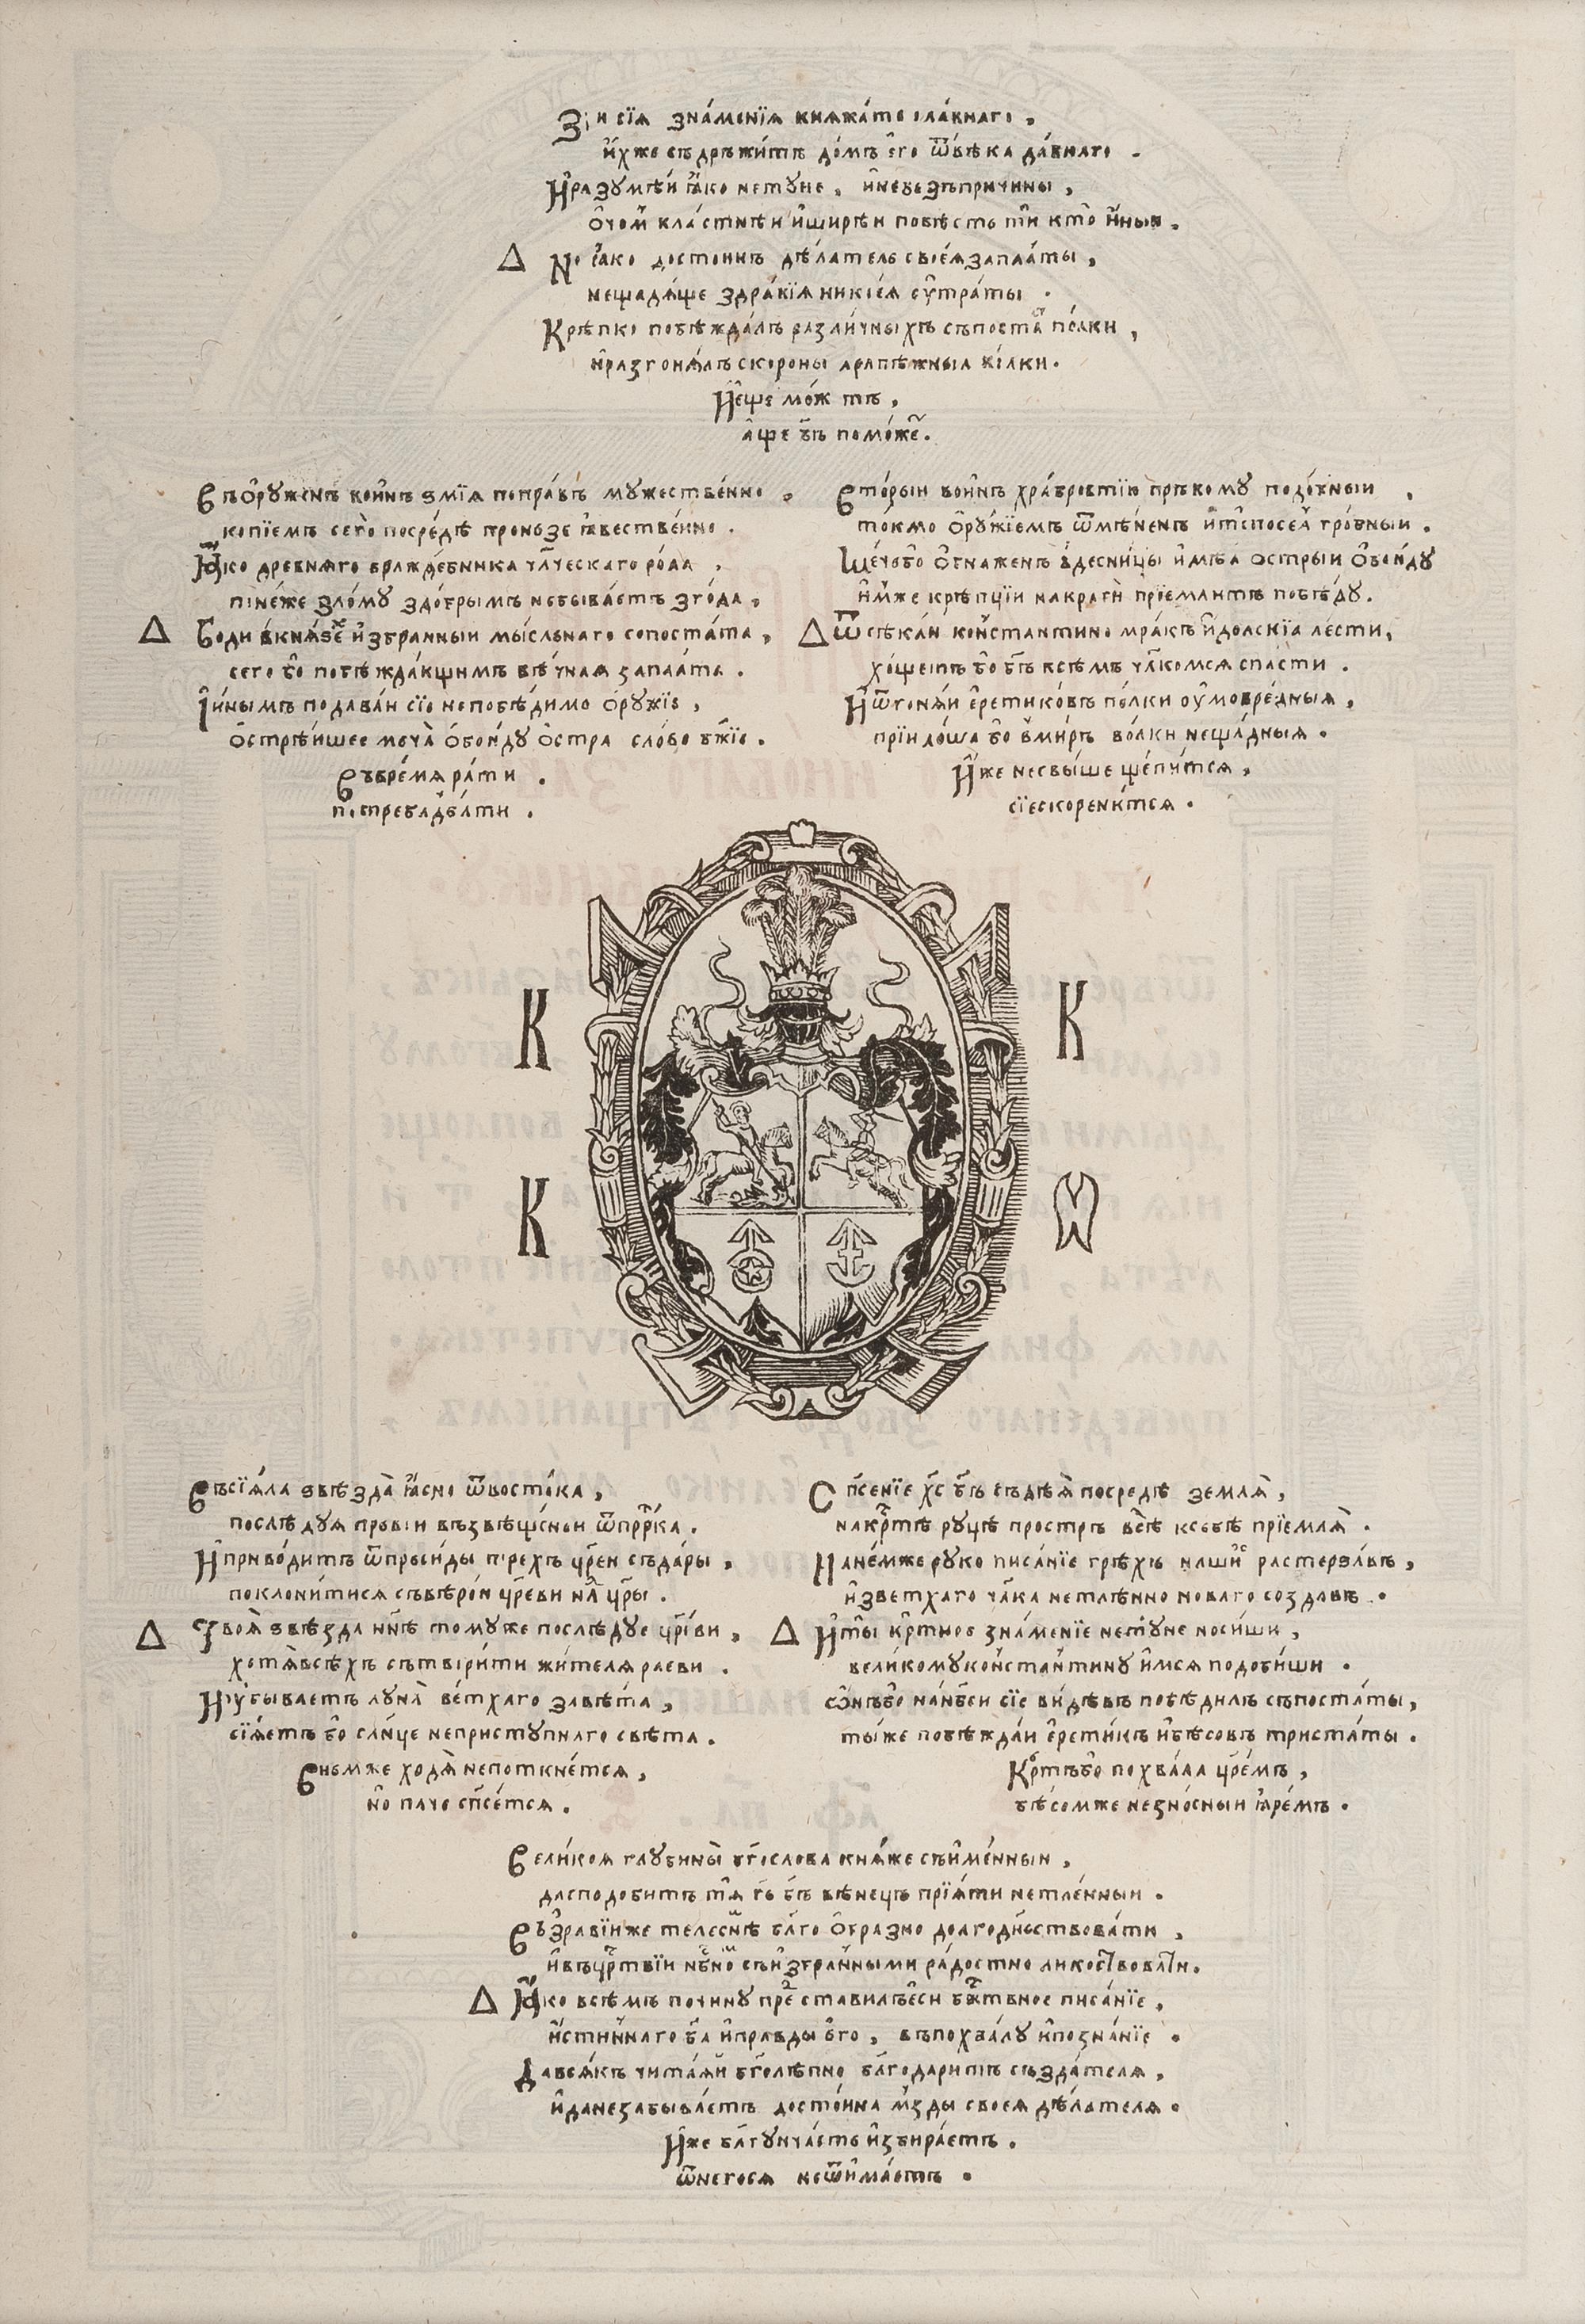 Зри сїѧ зна́менїѧ кнѧжа́те сла́внаго ,
и҆́хже съдръжи́тъ до́мъ є҆го ѿвѣ́ка да́внаго .
И҆разꙋмѣ́й ꙗ҆́ко нетꙋне , и҆небезъпричи́ны ,
ѻ҆чом̾ вла́стнѣй и҆ширѣй повѣсть тѝ кто̀ и҆́ныи .
Δ Но ꙗ҆́ко досто́инъ дѣ́латель своеѧ̀ запла́ты ,
нещадѧ́ще здра́вїѧ ниκіеѧ̀ ᲂу҆тра́ты .
Крѣ́пко побѣжда́лъ разли́чныхъ съпоста́т по́лки ,
и҆разгонѧ́лъ скоро́ны драпѣ́жныа во́лки .
И҆є҆ще мо́жетъ ,
а҆ще бг҃ъ помо́жет .
Въѻ҆рꙋже́нъ во́инъ ѕмі́ѧ попра́въ мꙋжестве́нно ,
копїемъ сего̀ посре́дѣ проньзе ꙗ҆вестве́нно .
Ꙗ҆́ко дре́внѧго враждебника чл҃ческаго ро́да ,
поне́же зло́мꙋ здо́брымъ небыва́етъ зго́да ,
Δ Боди̂ вкнѧ́ѕех и҆́збранныи мы́сльнаго сопоста́та ,
сего бо̀ побѣжда́ющимъ вѣ́чнаѧ запла́та .
И҆и҆нымъ подава́й сїе непобѣ́димо ѻ҆рꙋ́жїе ,
ѻ҆стрѣ́йшее меча̀ ѻ҆бою́дꙋ ѻ҆́стра сло́во бж҃їе .
Въвре́мѧ ра́ти .
потребл́ѧдѣѧти .
Вто́рыи во́инъ хра́бровтїю пръвомꙋ подо́бныи ,
токмо ѻ҆рꙋ́жїемъ ѿмѣ́ненъ и҆т҆спосеѧ̀ гро́бныи .
Ме́чобо ѻ҆бнаже́нъ вдесни́цы и҆мѣ́ѧ о́стрыи ѻ҆бою́дꙋ
и҆́мже крѣ́пцїи накраги̂ прїе́млютъ побѣ́дꙋ .
Δ Ѿсѣка́й ко́нстантино мра́къ и҆́дольскїа ле́сти ,
хо́щетъ бо̀ бг҃ъ всѣ́мъ чл҃комсѧ спасти .
И҆ѿгонѧ́й є҆ретико́въ по́лки ᲂу҆мовре́дныѧ ,
прїидо́ша бо̀ в̾ми́ръ во́лки неща́дныѧ .
И҆́же несвы́ше щепи́тсѧ ,
сїескорени́тсѧ .
К К
К Ѡ
Въсїѧ́ла ѕвѣзда̀ ꙗ҆́сно ѿвосто́ка ,
послѣ́дꙋѧ провіи̂ възвѣще́ной ѿпррⷪ҇ка .
И҆приво́дитъ ѿпръси́ды три́ехъ цр҃ей съда́ры ,
поклони́тисѧ съвѣ́рою цр҃еви на́д цр҃ы .
Δ Твоѧ̀ ѕвѣзда нн҃ѣ томꙋже послѣ́дꙋе цр҃еви ,
хотѧ̀всѣ́хъ сътвори́ти жи́телѧ раеви .
И҆ᲂу҆быва́етъ лꙋна̀ ве́тхаго завѣ́та ,
сїѧ́етъ бо̀ сл҃нце непристꙋ́пнаго свѣ́та .
Внемже ходѧ̀ непоткне́тсѧ ,
но̀ паче сп҃се́тсѧ .
Сп҃сенїе хс҃ бг҃ъ съдѣѧ̀ посредѣ землѧ̀ ,
накрⷭ҇тѣ рꙋцѣ простръ всѣ̀ ксебѣ прїемлѧ̀ .
Нане́мже рꙋко писа́нїе грѣ́хъ нашиⷯ растерза́въ ,
и҆зветхаго чл҃ка нетлѣнно новаго созда́въ .
Δ И҆ты̀ крⷭ҇тное зна́менїе нетꙋ́не носи́ши ,
вели́комꙋ ко́нстантинꙋ и҆́мсѧ подо́биши .
ѻ҆нъбо̀ нан҃бси сїе ви́дѣвъ побѣди́лъ съпоста́ты ,
ты́же побѣжда́й є҆рети́къ и҆бѣ́совъ триста́ты .
Крⷭ҇тъбо̀ похвала цр҃е́мъ ,
бѣ́сомже незно́сныи ꙗ҆ре́мъ .
Вели́коѧ глꙋбины̀ бг҃ослова кнѧ́же съи҆ме́нныи ,
дасподо́битъ тѧ̀ гь҃ бг҃ъ вѣне́цъ прїѧ́ти нетлѣ́нныи .
Въздравїиже телеснѣⷨ бл҃го ѻ҆бра́зно долгоде́нствова́ти ,
и҆въцрⷭ҇твїи нбⷭ҇ном съи҆збра́нными ра́достно ликоствовати .
Δ Ꙗ҆́ко всѣ́мъ почи́нꙋ прⷣеставилъє҆си бжⷭ҇твное писа́нїе ,
и҆́стиннаго бг҃а и҆пра́вды є҆го , въпохва́лꙋ и҆позна́нїе .
Давсѧ́къ чита́ѧи бг҃олѣ́пно бл҃годари́тъ създа́телѧ ,
и҆данезабыва́етъ досто́йна мзды своеѧ дѣ́лателѧ .
И҆́же благꙋ́ю ча́сть и҆збира́етъ .
ѿнегосѧ неѿи҆ма́етъ .